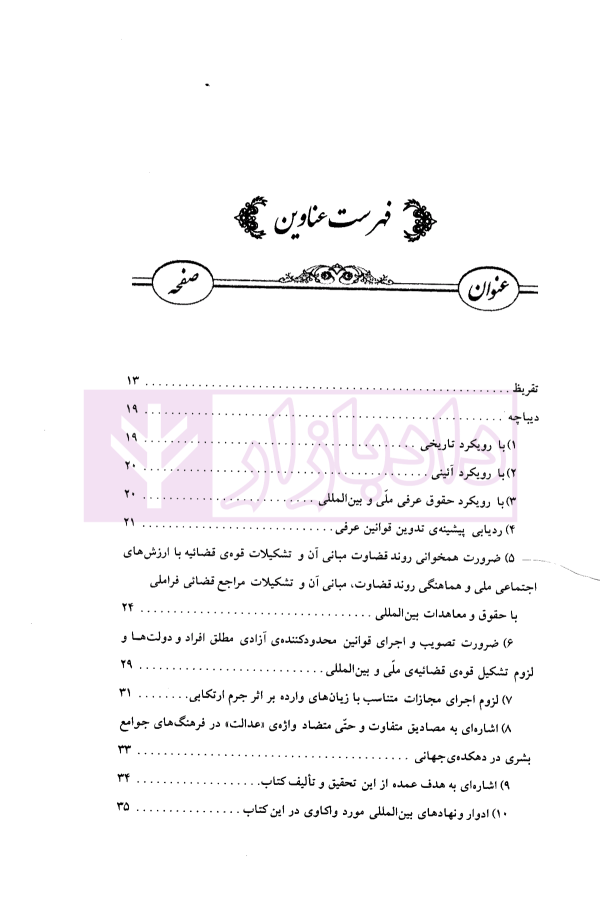 فهرست عناوین
عنوان
صفحه
دادبازار
تقریظ ........................................ ۱۳
دیباچه ........................................ ۱۹
۱) با رویکرد تاریخی ........................................ ۱۹
۲) با رویکرد آئینی ........................................ ۲۰
۳) با رویکرد حقوق عرفی ملّی و بین‌المللی ........................................ ۲۰
۴) ردیابی پیشینه‌ی تدوین قوانین عرفی ........................................ ۲۱
۵) ضرورت همخوانی روند قضاوت مبانی آن و تشکیلات قوه‌ی قضائیه با ارزش‌های
اجتماعی ملی و هماهنگی روند قضاوت، مبانی آن و تشکیلات مراجع قضائی فراملی
با حقوق و معاهدات بین‌المللی ........................................ ۲۴
۶) ضرورت تصویب و اجرای قوانین محدودکننده‌ی آزادی مطلق افراد و دولت‌ها و
لزوم تشکیل قوه‌ی قضائیه‌ی ملّی و بین‌المللی ........................................ ۲۹
۷) لزوم اجرای مجازات متناسب با زیان‌های وارده بر اثر جرم ارتکابی ........ ۳۱
۸) اشاره‌ای به مصادیق متفاوت و حتّی متضاد واژه‌ی «عدالت» در فرهنگ‌های جوامع
بشری در دهکده‌ی جهانی ........................................ ۳۳
۹) اشاره‌ای به هدف عمده از این تحقیق و تألیف کتاب .................... ۳۴
۱۰) ادوار و نهادهای بین‌المللی مورد واکاوی در این کتاب ................ ۳۵